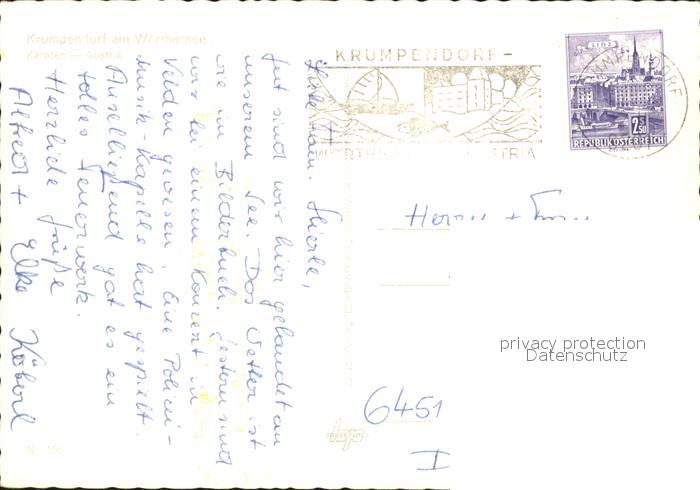 Krumpendorf am Wörthersee
Kärnten — Austria
Liebe Fam.
gut sind wir hier gelandet an
unserem See. Das Wetter ist
wie im Bilderbuch. Gestern sind
wir bei einem Konzert in
Velden gewesen. Eine Polizei-
Musik-Kapelle hat gespielt.
Anschließend gab es ein
tolles Feuerwerk.
Herzliche Grüße
Alfred + Elke
KRUMPENDORF-
LINZ
2,50
REPUBLIK ÖSTERREICH
Herrn +
privacy protection
Datenschutz
6451
I